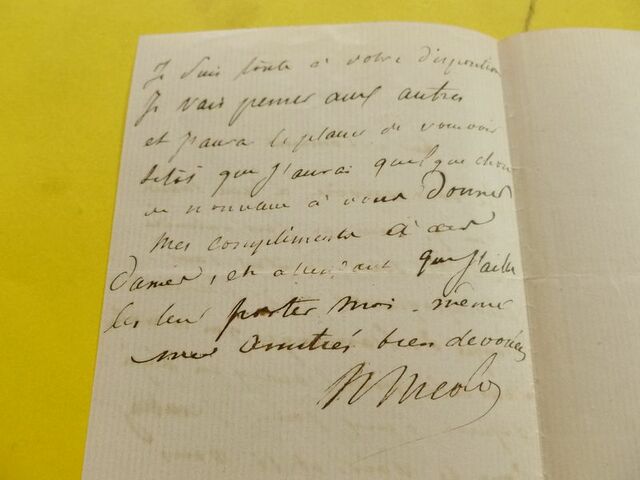 Je suis toute à votre disposition
Je vais penser aux autres
et j'aurai le plaisir de vous voir
sitôt que j'aurai quelque chose
de nouveau à vous donner
mes compliments à ces
dames, en attendant que j'aille
les leur porter moi-même
mes amitiés bien dévouées